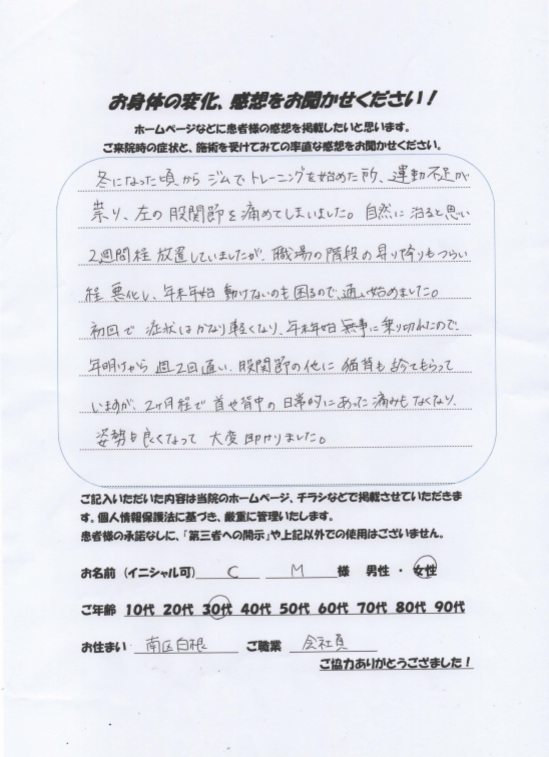 お身体の変化、感想をお聞かせください!
ホームページなどに患者様の感想を掲載したいと思います。
ご来院時の症状と、施術を受けてみての率直な感想をお聞かせください。
冬になった頃からジムでトレーニングを始めた所、運動不足が
祟り、左の股関節を痛めてしまいました。自然に治ると思い
2週間程放置していましたが、職場の階段の昇り降りもつらい
程悪化し、年末年始動けないのも困るので、通い始めました。
初回で症状はかなり軽くなり、年末年始無事に乗り切れたので、
年明けから週2回通い、股関節の他に猫背も診てもらって
いますが、2ヶ月程で首や背中の日常的にあった痛みもなくなり、
姿勢も良くなって大変助かりました。
ご記入いただいた内容は当院のホームページ、チラシなどで掲載させていただきま
す。個人情報保護法に基づき、厳重に管理いたします。
患者様の承諾なしに、「第三者への開示」や上記以外での使用はございません。
お名前(イニシャル可) C M 様 男性 ・ 女性
ご年齢 10代 20代 30代 40代 50代 60代 70代 80代 90代
お住まい 南区白根 ご職業 会社員
ご協力ありがとうござまました!